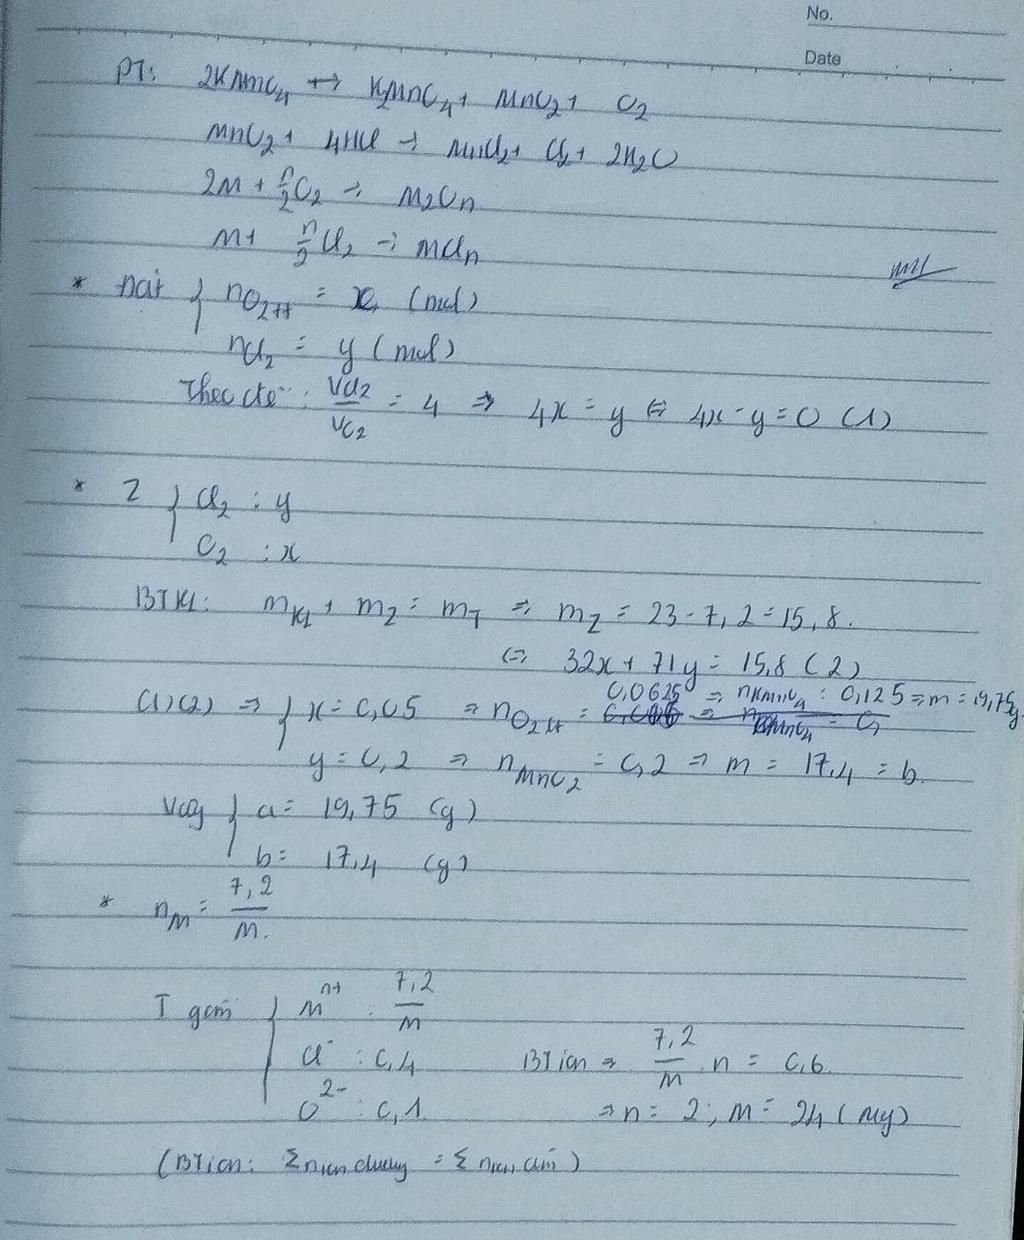 No.
Date
PT: 2KMnO4 → K2MnO4 + MnO2 + O2
MnO2 + 4HCl → MnCl2 + Cl2 + 2H2O
2M + n/2 O2 → M2On
M + n/2 Cl2 → MCln
* Đặt { nO2 tt = x (mol)
nCl2 = y (mol)
Theo đề: VCl2/VO2 = 4 ⇒ 4x = y ⇔ 4x - y = 0 (1)
* Z { Cl2 : y
O2 : x
BTKL: mKL + mZ = mT ⇒ mZ = 23 - 7,2 = 15,8.
⇔ 32x + 71y = 15,8 (2)
(1)(2) ⇒ { x = 0,05 ⇒ nO2 lt = 0,0625 ⇒ nKMnO4 : 0,125 ⇒ m = 19,75g
y = 0,2 ⇒ nMnO2 = 0,2 ⇒ m = 17,4 = b.
Vậy { a = 19,75 (g)
b = 17,4 (g)
* nM = 7,2/M.
T gồm { M^n+ : 7,2/M
Cl- : 0,4 BTion ⇒ 7,2/M . n = 0,6
O^2- : 0,1. ⇒ n = 2; M = 24 (Mg)
(BTion: Σ nion dương = Σ nion âm)